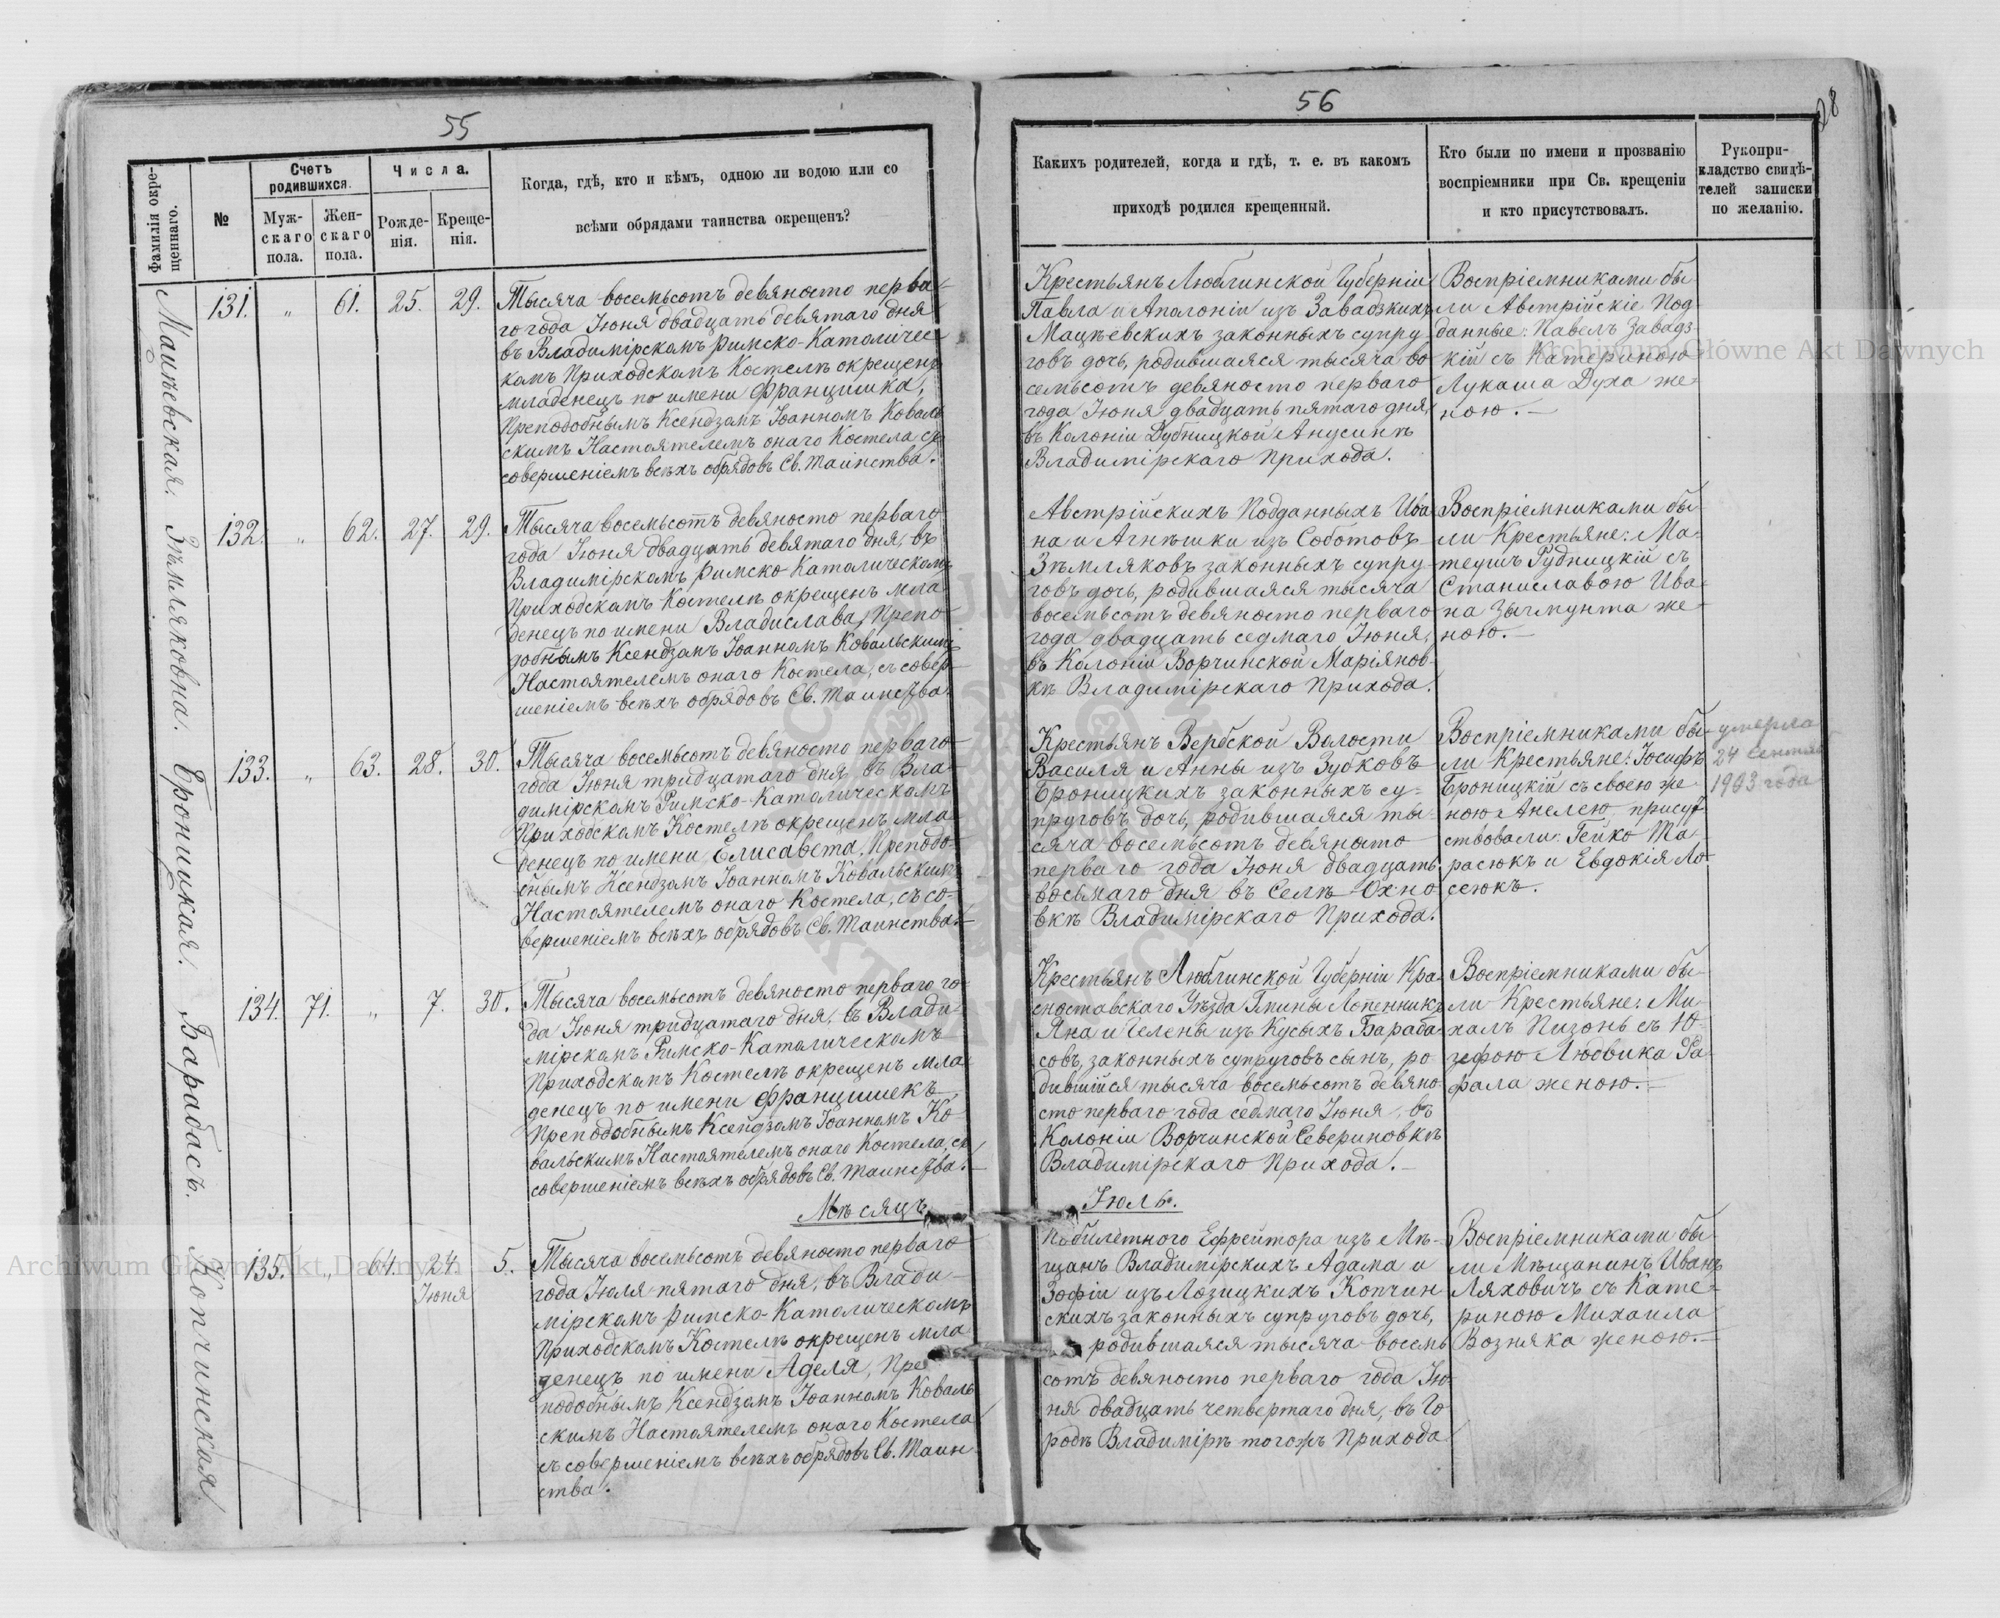 55
Фамилія окре-
щеннаго.
№
Счетъ
родившихся.
Муж-
скаго
пола.
Жен-
скаго
пола.
Числа.
Рожде-
нія.
Креще-
нія.
Когда, гдѣ, кто и кѣмъ, одною ли водою или со
всѣми обрядами таинства окрещенъ?
Мацѣевская.
131.
„
61.
25.
29.
Тысяча восемьсотъ девяносто перва-
го года Іюня двадцать девятаго дня
въ Владимірскомъ Римско-Католичес-
комъ Приходскомъ Костелѣ окрещенъ
младенецъ по имени Францишка,
Преподобнымъ Ксендзомъ Іоанномъ Коваль
скимъ Настоятелемъ онаго Костела съ
совершеніемъ всѣхъ обрядовъ Св. Таинства.
Зѣмляковна.
132.
„
62.
27.
29.
Тысяча восемьсотъ девяносто перваго
года Іюня двадцать девятаго дня, въ
Владимірскомъ Римско Католическомъ
Приходскомъ Костелѣ окрещенъ мла
денецъ по имени Владислава, Препо-
добнымъ Ксендзомъ Іоанномъ Ковальскимъ
Настоятелемъ онаго Костела, съ совер-
шеніемъ всѣхъ обрядовъ Св. Таинства.
Броницкая.
133.
„
63.
28.
30.
Тысяча восемьсотъ девяносто перваго
года Іюня тридцатаго дня въ Вла-
димірскомъ Римско-Католическомъ
Приходскомъ Костелѣ окрещенъ мла
денецъ по имени Елисавета, Преподо-
бнымъ Ксендзомъ Іоанномъ Ковальскимъ
Настоятелемъ онаго Костела, съ со-
вершеніемъ всѣхъ обрядовъ Св. Таинства.
Барабасъ.
134.
71.
„
7.
30.
Тысяча восемьсотъ девяносто перваго го-
да Іюня тридцатаго дня, въ Влади
мірскомъ Римско-Католическомъ
Приходскомъ Костелѣ окрещенъ мла
денецъ по имени Францишекъ
Преподобнымъ Ксендзомъ Іоанномъ Ко
вальскимъ Настоятелемъ онаго Костела, съ
совершеніемъ всѣхъ обрядовъ Св. Таинства.
Мѣсяцъ
Копчинская
135.
„
64.
24.
Іюня
5.
Тысяча восемьсотъ девяносто перваго
года Іюля пятаго дня, въ Влади-
мірскомъ Римско-Католическомъ
Приходскомъ Костелѣ окрещенъ мла
денецъ по имени Аделя, Пре
подобнымъ Ксендзомъ Іоанномъ Коваль
скимъ Настоятелемъ онаго Костела
съ совершеніемъ всѣхъ обрядовъ Св. Таин
ства.
56
28
Какихъ родителей, когда и гдѣ, т. е. въ какомъ
приходѣ родился крещенный.
Кто были по имени и прозванію
воспріемники при Св. крещеніи
и кто присутствовалъ.
Рукопри-
кладство свидѣ-
телей записки
по желанію.
Крестьянъ Люблинской Губерніи
Павла и Аполоніи изъ Завадзкихъ
Мацѣевскихъ законныхъ супру
говъ дочь, родившаяся тысяча во
семьсотъ девяносто перваго
года Іюня двадцать пятаго дня,
въ Колоніи Дубницкой Анусинѣ
Владимірскаго Прихода.
Воспріемниками бы-
ли Австрійскіе Под-
данные: Павелъ Завадз-
кій съ Катериною
Лукаша Духа же-
ною.
Австрійскихъ Подданныхъ Ива
на и Агнѣшки изъ Соботовъ
Зѣмляковъ законныхъ супру
говъ дочь, родившаяся тысяча
восемьсотъ девяносто перваго
года двадцать седмаго Іюня,
въ Колоніи Ворчинской Маріянов-
кѣ Владимірскаго Прихода.
Воспріемниками бы
ли Крестьяне: Ма-
теушъ Рудницкій съ
Станиславою Ива-
на Зыгмунта же-
ною.
Крестьянъ Вербской Волости
Василя и Анны изъ Зубковъ
Броницкихъ законныхъ су-
пруговъ дочь, родившаяся ты-
сяча восемьсотъ девяносто
перваго года Іюня двадцать
восьмаго дня въ Селѣ Охно
вкѣ Владимірскаго Прихода.
Воспріемниками бы-
ли Крестьяне: Іосифъ
Броницкій съ своею же
ною Анелею, присут
ствовали: Гейко Та-
расюкъ и Евдокія Ло-
сеюкъ.
умерла
24 Сентяб
1903 года
Крестьянъ Люблинской Губерніи Кра-
сноставскаго Уѣзда Гмины Лопенникъ
Яна и Гелены изъ Кусыхъ Бараба
совъ, законныхъ супруговъ сынъ, ро
дившійся тысяча восемьсотъ девяно
сто перваго года седмаго Іюня, въ
Колоніи Ворчинской Севериновкѣ
Владимірскаго Прихода.
Воспріемниками бы-
ли Крестьяне: Ми-
халъ Пизонь съ Ю-
зефою Людвика Ра
фала женою.
Іюль.
Побилетного Ефрейтора изъ Мѣ-
щанъ Владимірскихъ Адама и
Зофіи изъ Лозицкихъ Копчин
скихъ законныхъ супруговъ дочь,
родившаяся тысяча восемь
сотъ девяносто перваго года Ію-
ня двадцать четвертаго дня, въ Го
родѣ Владимірѣ тогожъ Прихода
Воспріемниками бы
ли Мѣщанинъ Иванъ
Ляховичъ съ Кате-
риною Михаила
Возняка женою.
Archiwum Główne Akt Dawnych
Archiwum Główne Akt Dawnych